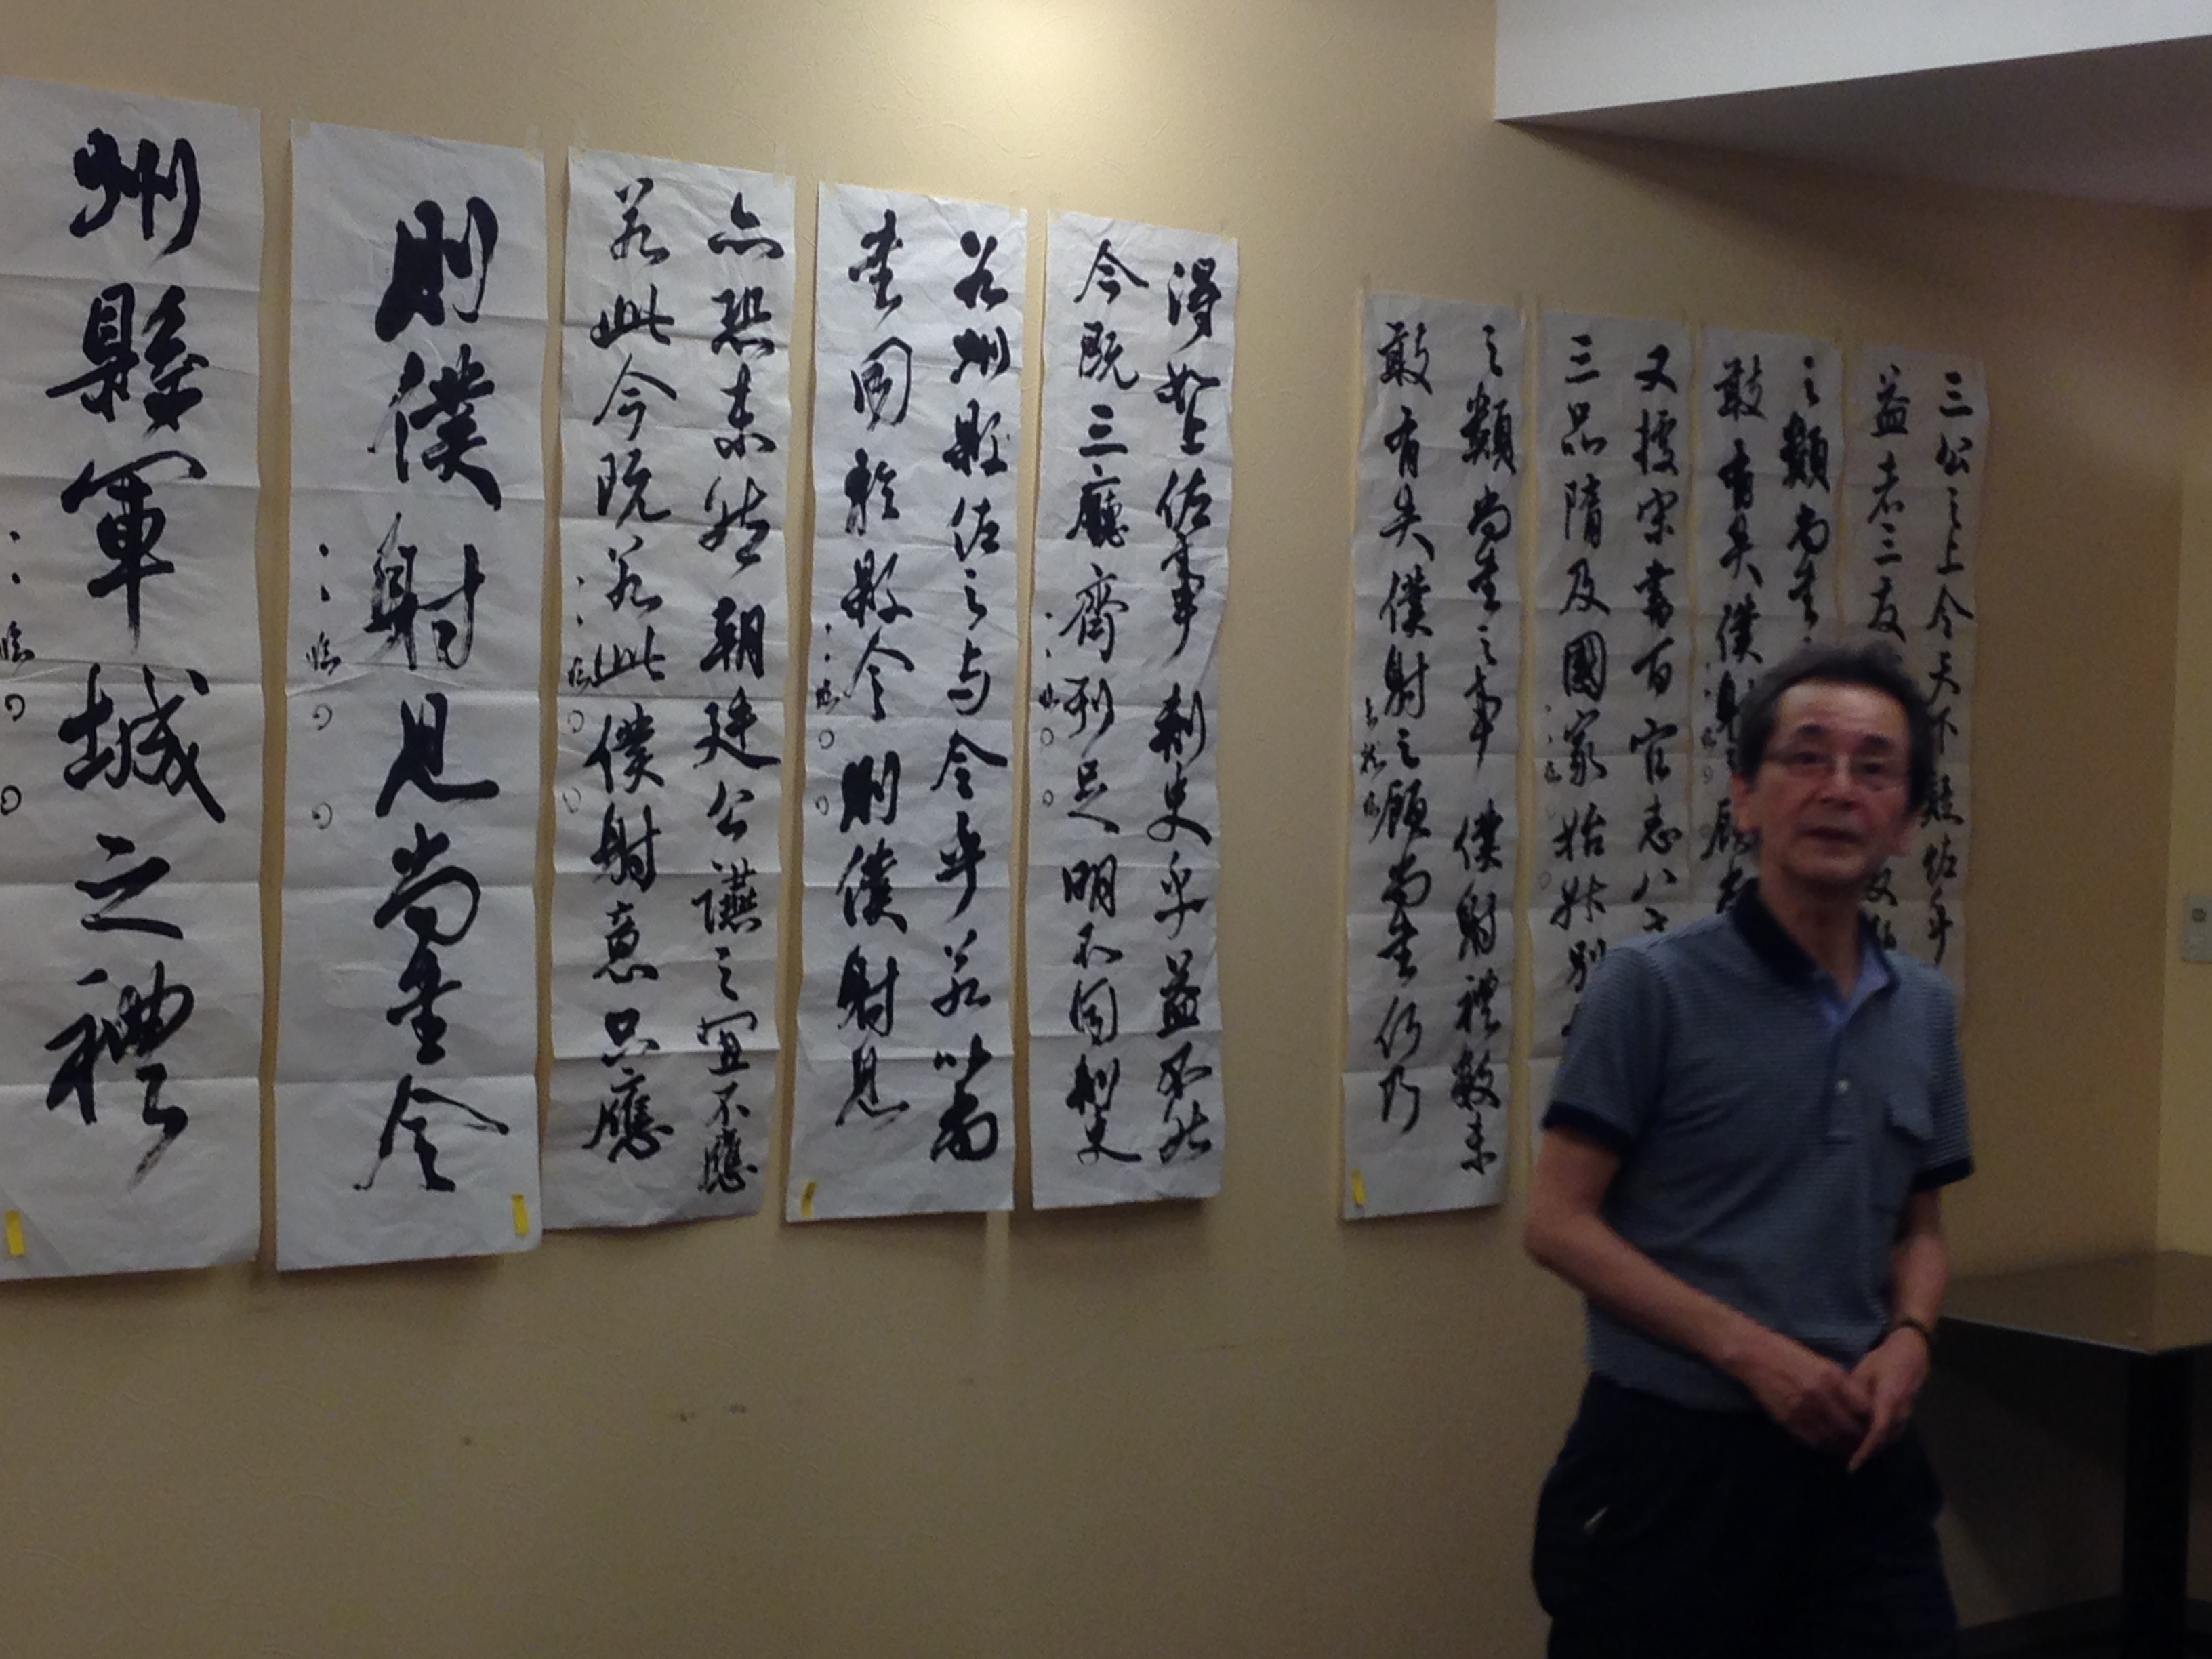 三公之上今天下
益者三友
之類尚書
敢有失僕射
又據宋書百官志八
三品隋及國家始升別
之類尚書之事僕射禮數未
敢有失僕射之顧尚書何乃
得如上佐事刺史乎益不然
今既三廳齊列足明不同刺史
若州縣佐之与令乎若以尚
書同於縣令則僕射見
亦恐未然朝廷公讌之宜不應
若此今既若此僕射意只應
則僕射見尚書令
臨
州縣軍城之禮
臨